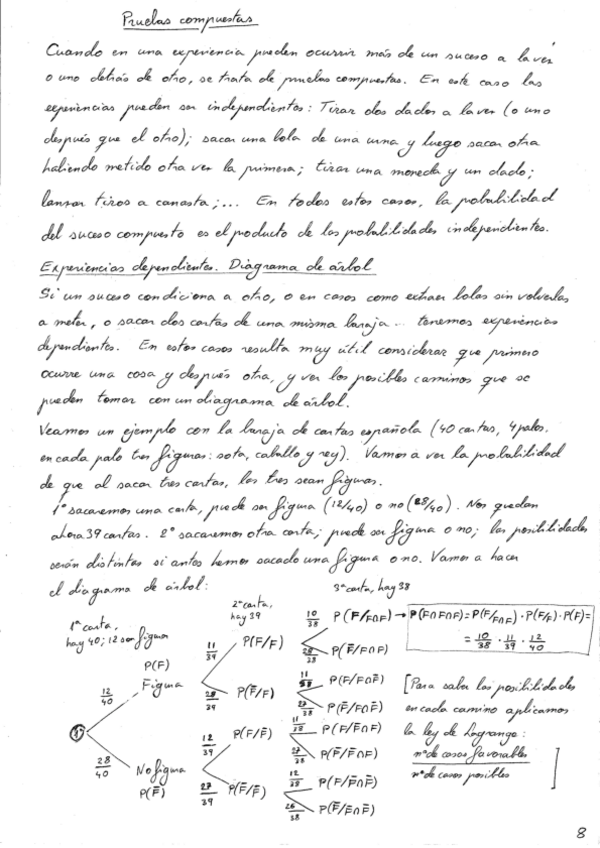 Pruebas compuestas
Cuando en una experiencia pueden ocurrir más de un suceso a la vez
o uno detrás de otro, se trata de pruebas compuestas. En este caso las
experiencias pueden ser independientes: Tirar dos dados a la vez (o uno
después que el otro); sacar una bola de una urna y luego sacar otra
habiendo metido otra vez la primera; tirar una moneda y un dado;
lanzar tiros a canasta;... En todos estos casos, la probabilidad
del suceso compuesto es el producto de las probabilidades independientes.
Experiencias dependientes. Diagrama de árbol
Si un suceso condiciona a otro, o en casos como extraer bolas sin volverlas
a meter, o sacar dos cartas de una misma baraja... tenemos experiencias
dependientes. En estos casos resulta muy útil considerar que primero
ocurre una cosa y después otra, y ver los posibles caminos que se
pueden tomar con un diagrama de árbol.
Veamos un ejemplo con la baraja de cartas española (40 cartas, 4 palos.
en cada palo tres figuras: sota, caballo y rey). Vamos a ver la probabilidad
de que al sacar tres cartas, las tres sean figuras.
1º sacaremos una carta, puede ser figura (12/40) o no (28/40). Nos quedan
ahora 39 cartas. 2º sacaremos otra carta; puede ser figura o no; las posibilidades
serán distintas si antes hemos sacado una figura o no. Vamos a hacer
el diagrama de árbol:
1ª carta,
hay 40; 12 son figuras
2ª carta,
hay 39
3ª carta, hay 38
12/40 P(F) Figura
28/40 No figura P(F̅)
11/39 P(F/F)
28/39 P(F̅/F)
12/39 P(F/F̅)
27/39 P(F̅/F̅)
10/38 P(F/F∩F) → P(F∩F∩F) = P(F/F∩F) · P(F/F) · P(F) =
= 10/38 · 11/39 · 12/40
28/38 P(F̅/F∩F)
11/38 P(F/F∩F̅)
27/38 P(F̅/F∩F̅)
11/38 P(F/F̅∩F)
27/38 P(F̅/F̅∩F)
12/38 P(F/F̅∩F̅)
26/38 P(F̅/F̅∩F̅)
[Para saber las posibilidades
en cada camino aplicamos
la ley de Lagrange:
nº de casos favorables
nº de casos posibles]
8